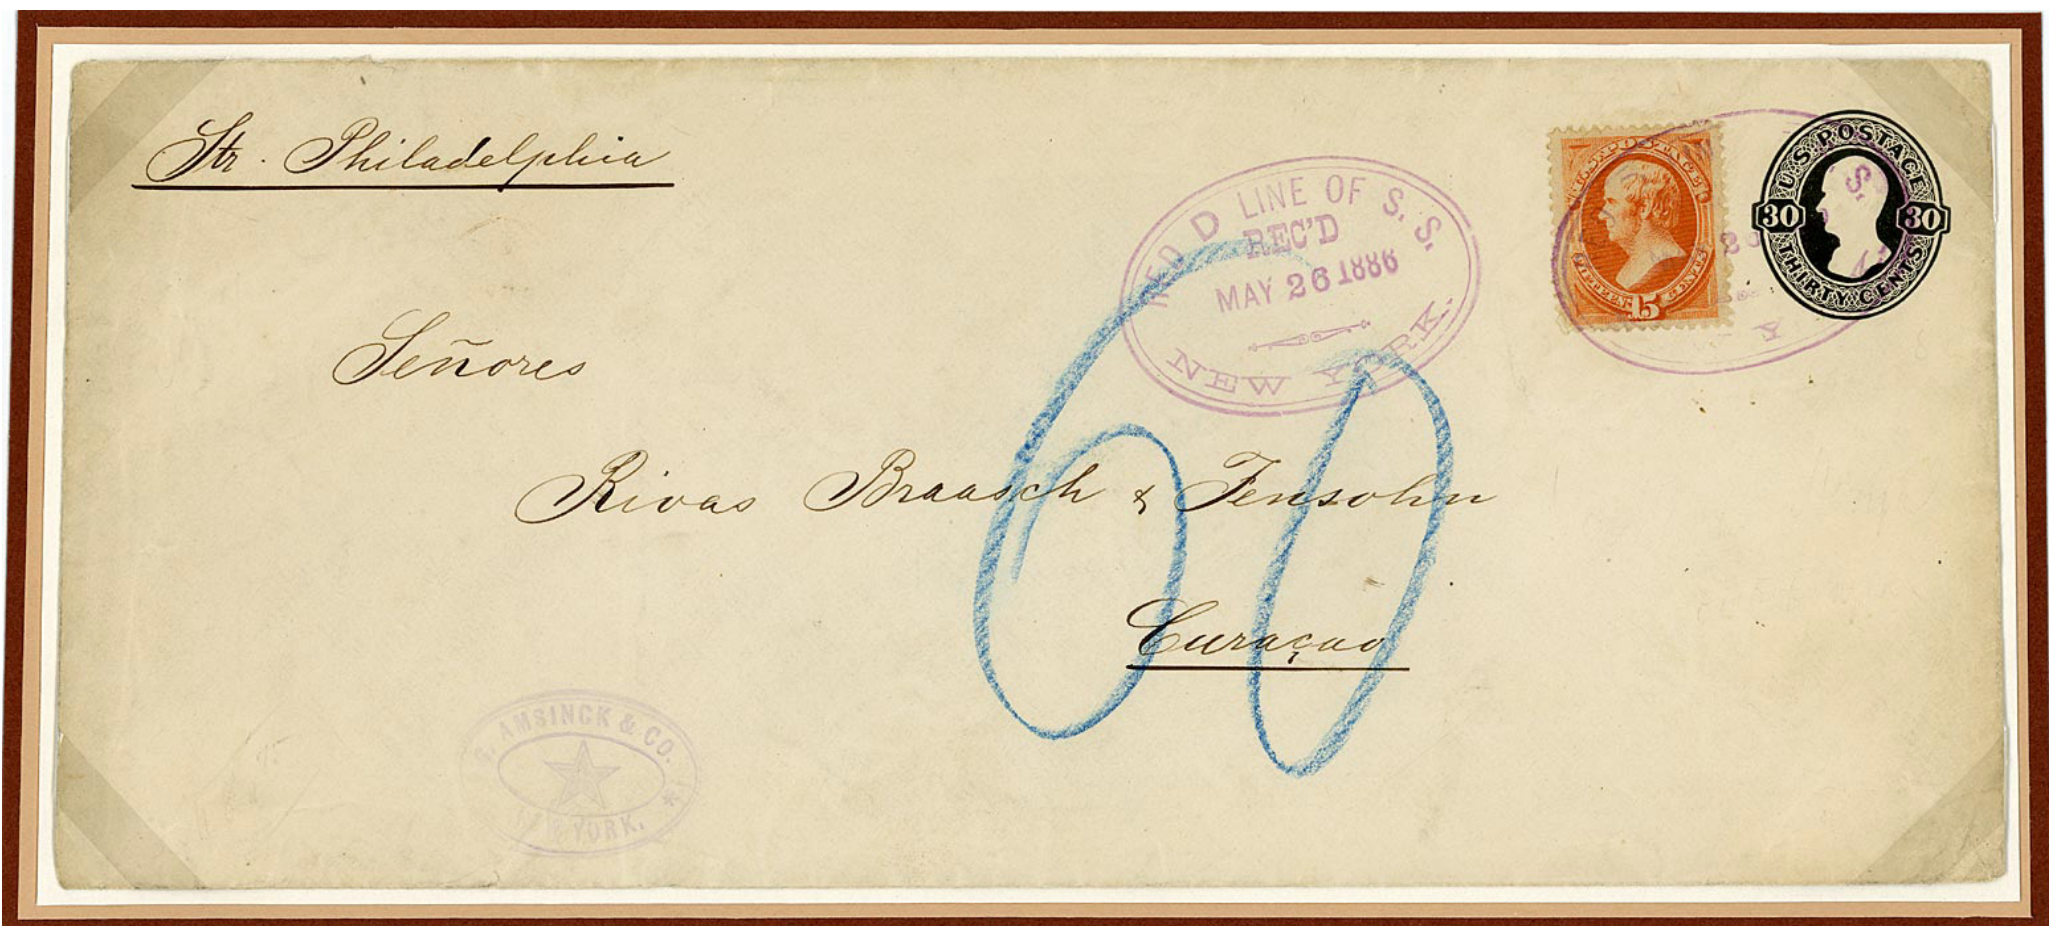 Str. Philadelphia
RED D LINE OF S. S.
REC'D
MAY 26 1886
NEW YORK.
U.S. POSTAGE
30 30
THIRTY CENTS
U.S. POSTAGE
FIFTEEN 15 CENTS
Señores
Rivas Braasch & Fensohn
Curaçao
60
G. AMSINCK & CO.
NEW YORK.